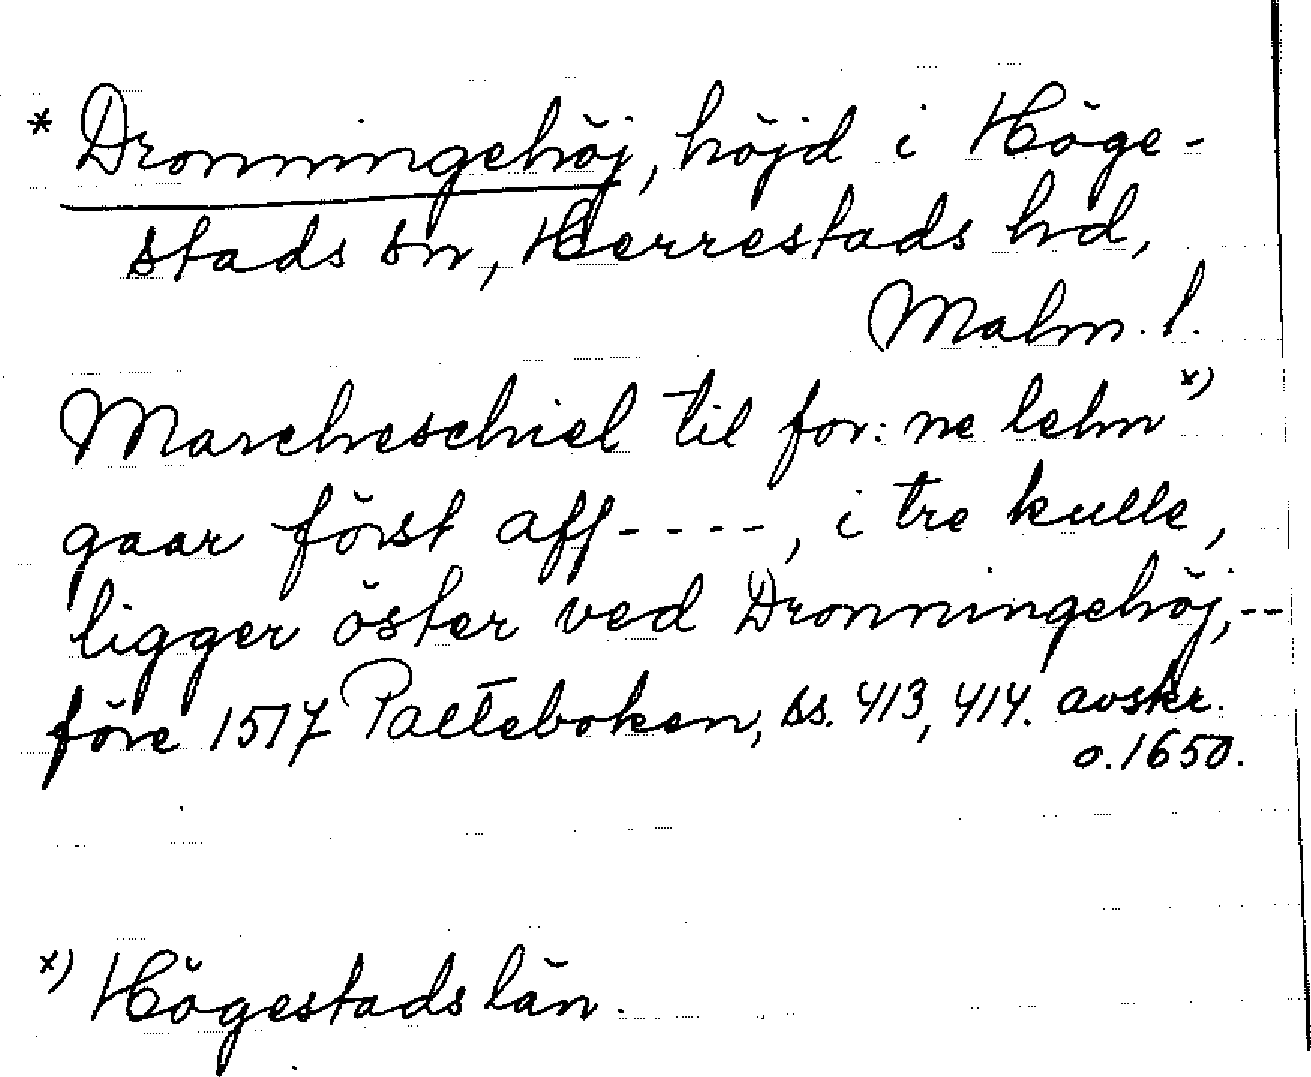 * Dronningehöj, höjd i Höge-
stads sn, Herrestads hd,
Malm. l.
Marcheschiel til for: ne lehn x)
gaar först aff - - - -, i tre kulle,
ligger öster ved Dronningehöj, --
före 1517 Palteboken, ss. 413, 414. avskr.
o. 1650.
x) Högestads län.